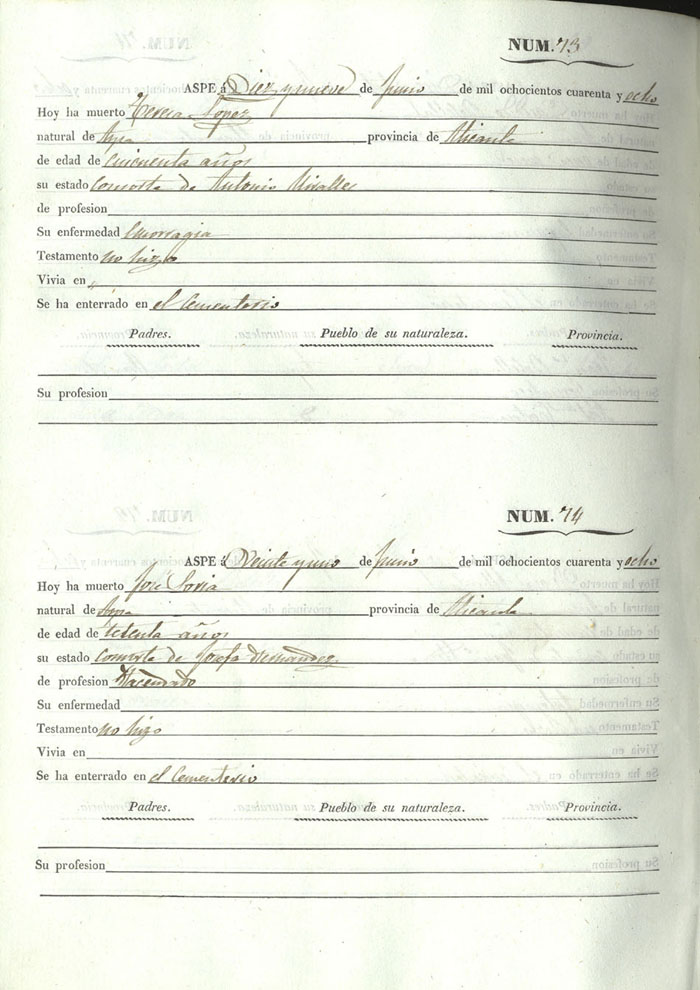 NUM. 73
ASPE á Diez y nueve de Junio de mil ochocientos cuarenta y ocho
Hoy ha muerto Teresa Lopez
natural de provincia de Alicante
de edad de cincuenta años
su estado consorte de Antonio Miralles
de profesion
Su enfermedad Emorragia
Testamento no hizo
Vivia en
Se ha enterrado en el Cementerio
Padres. Pueblo de su naturaleza. Provincia.
Su profesion
NUM. 74
ASPE á Veinte y uno de Junio de mil ochocientos cuarenta y ocho
Hoy ha muerto José Soria
natural de provincia de Alicante
de edad de setenta años
su estado consorte de Josefa Hernandez
de profesion Hacendado
Su enfermedad
Testamento no hizo
Vivia en
Se ha enterrado en el Cementerio
Padres. Pueblo de su naturaleza. Provincia.
Su profesion